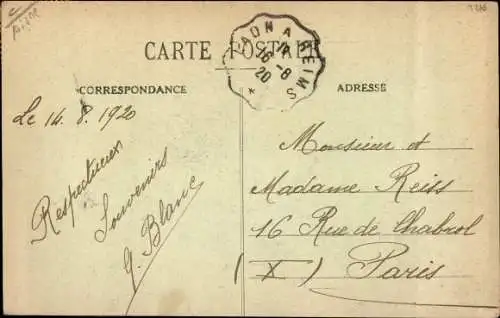 CARTE POSTALE
CORRESPONDANCE
ADRESSE
LAON A REIMS
16-8
20
Le 14. 8. 1920
Respectueux
Souvenirs
G. Blanc
Monsieur et
Madame Reiss
16 Rue de Chabrol
(X) Paris